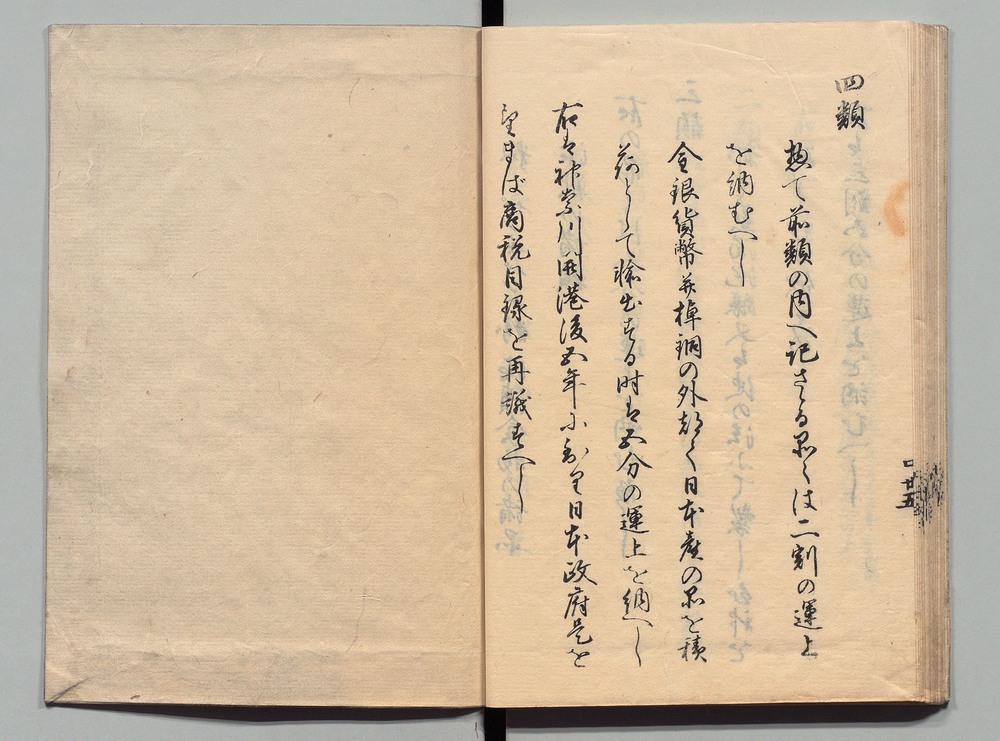 四類
惣て前類の内へ記さゝる品々は二割の運上
を納むへし
金銀貨幣并棹銅の外都て日本産の品を積
荷として輸出する時は五分の運上を納へし
右は神奈川開港後五年に至り日本政府是を
望まば商税目録を再議すへし
口廿五